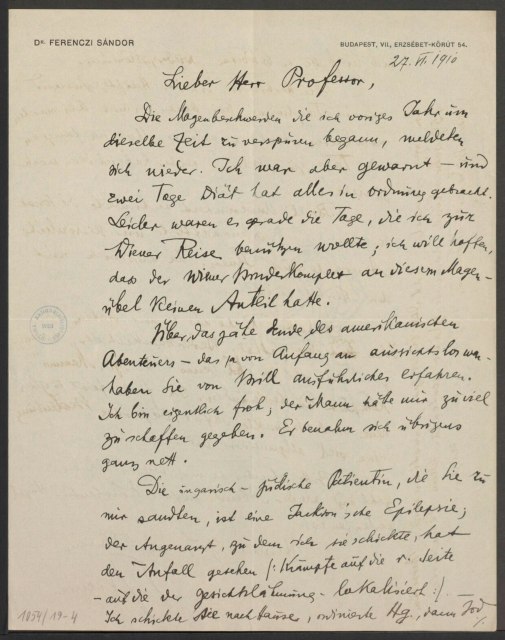 Dr. FERENCZI SÁNDOR
BUDAPEST, VII., ERZSÉBET-KÖRÚT 54.
27. VI. 1910
Lieber Herr Professor,
Die Magenbeschwerden die ich voriges Jahr um
dieselbe Zeit zu verspüren begann, meldeten
sich wieder. Ich war aber gewarnt – und
zwei Tage Diät hat alles in Ordnung gebracht.
Leider waren es gerade die Tage, die ich zur
Wiener Reise benützen wollte; ich will hoffen,
dass der Wiener Bruderkomplex an diesem Magen-
übel keinen Anteil hatte.
Über das jähe Ende des amerikanischen
Abenteuers – das ja von Anfang an aussichtslos war –
haben Sie von Brill ausführliches erfahren.
Ich bin eigentlich froh; der Mann hätte mir zu viel
zu schaffen gegeben. Er benahm sich übrigens
ganz nett.
Die ungarisch-jüdische Patientin, die Sie zu
mir sandten, ist eine Jackson'sche Epilepsie;
der Augenarzt, zu dem ich sie schickte, hat
den Anfall gesehen /: Krämpfe auf die r. Seite
– auf die der Gesichtslähmung – lokalisiert :/.
Ich schickte sie nach Hause, ordinierte Hg, dann Jod
1054/19-4